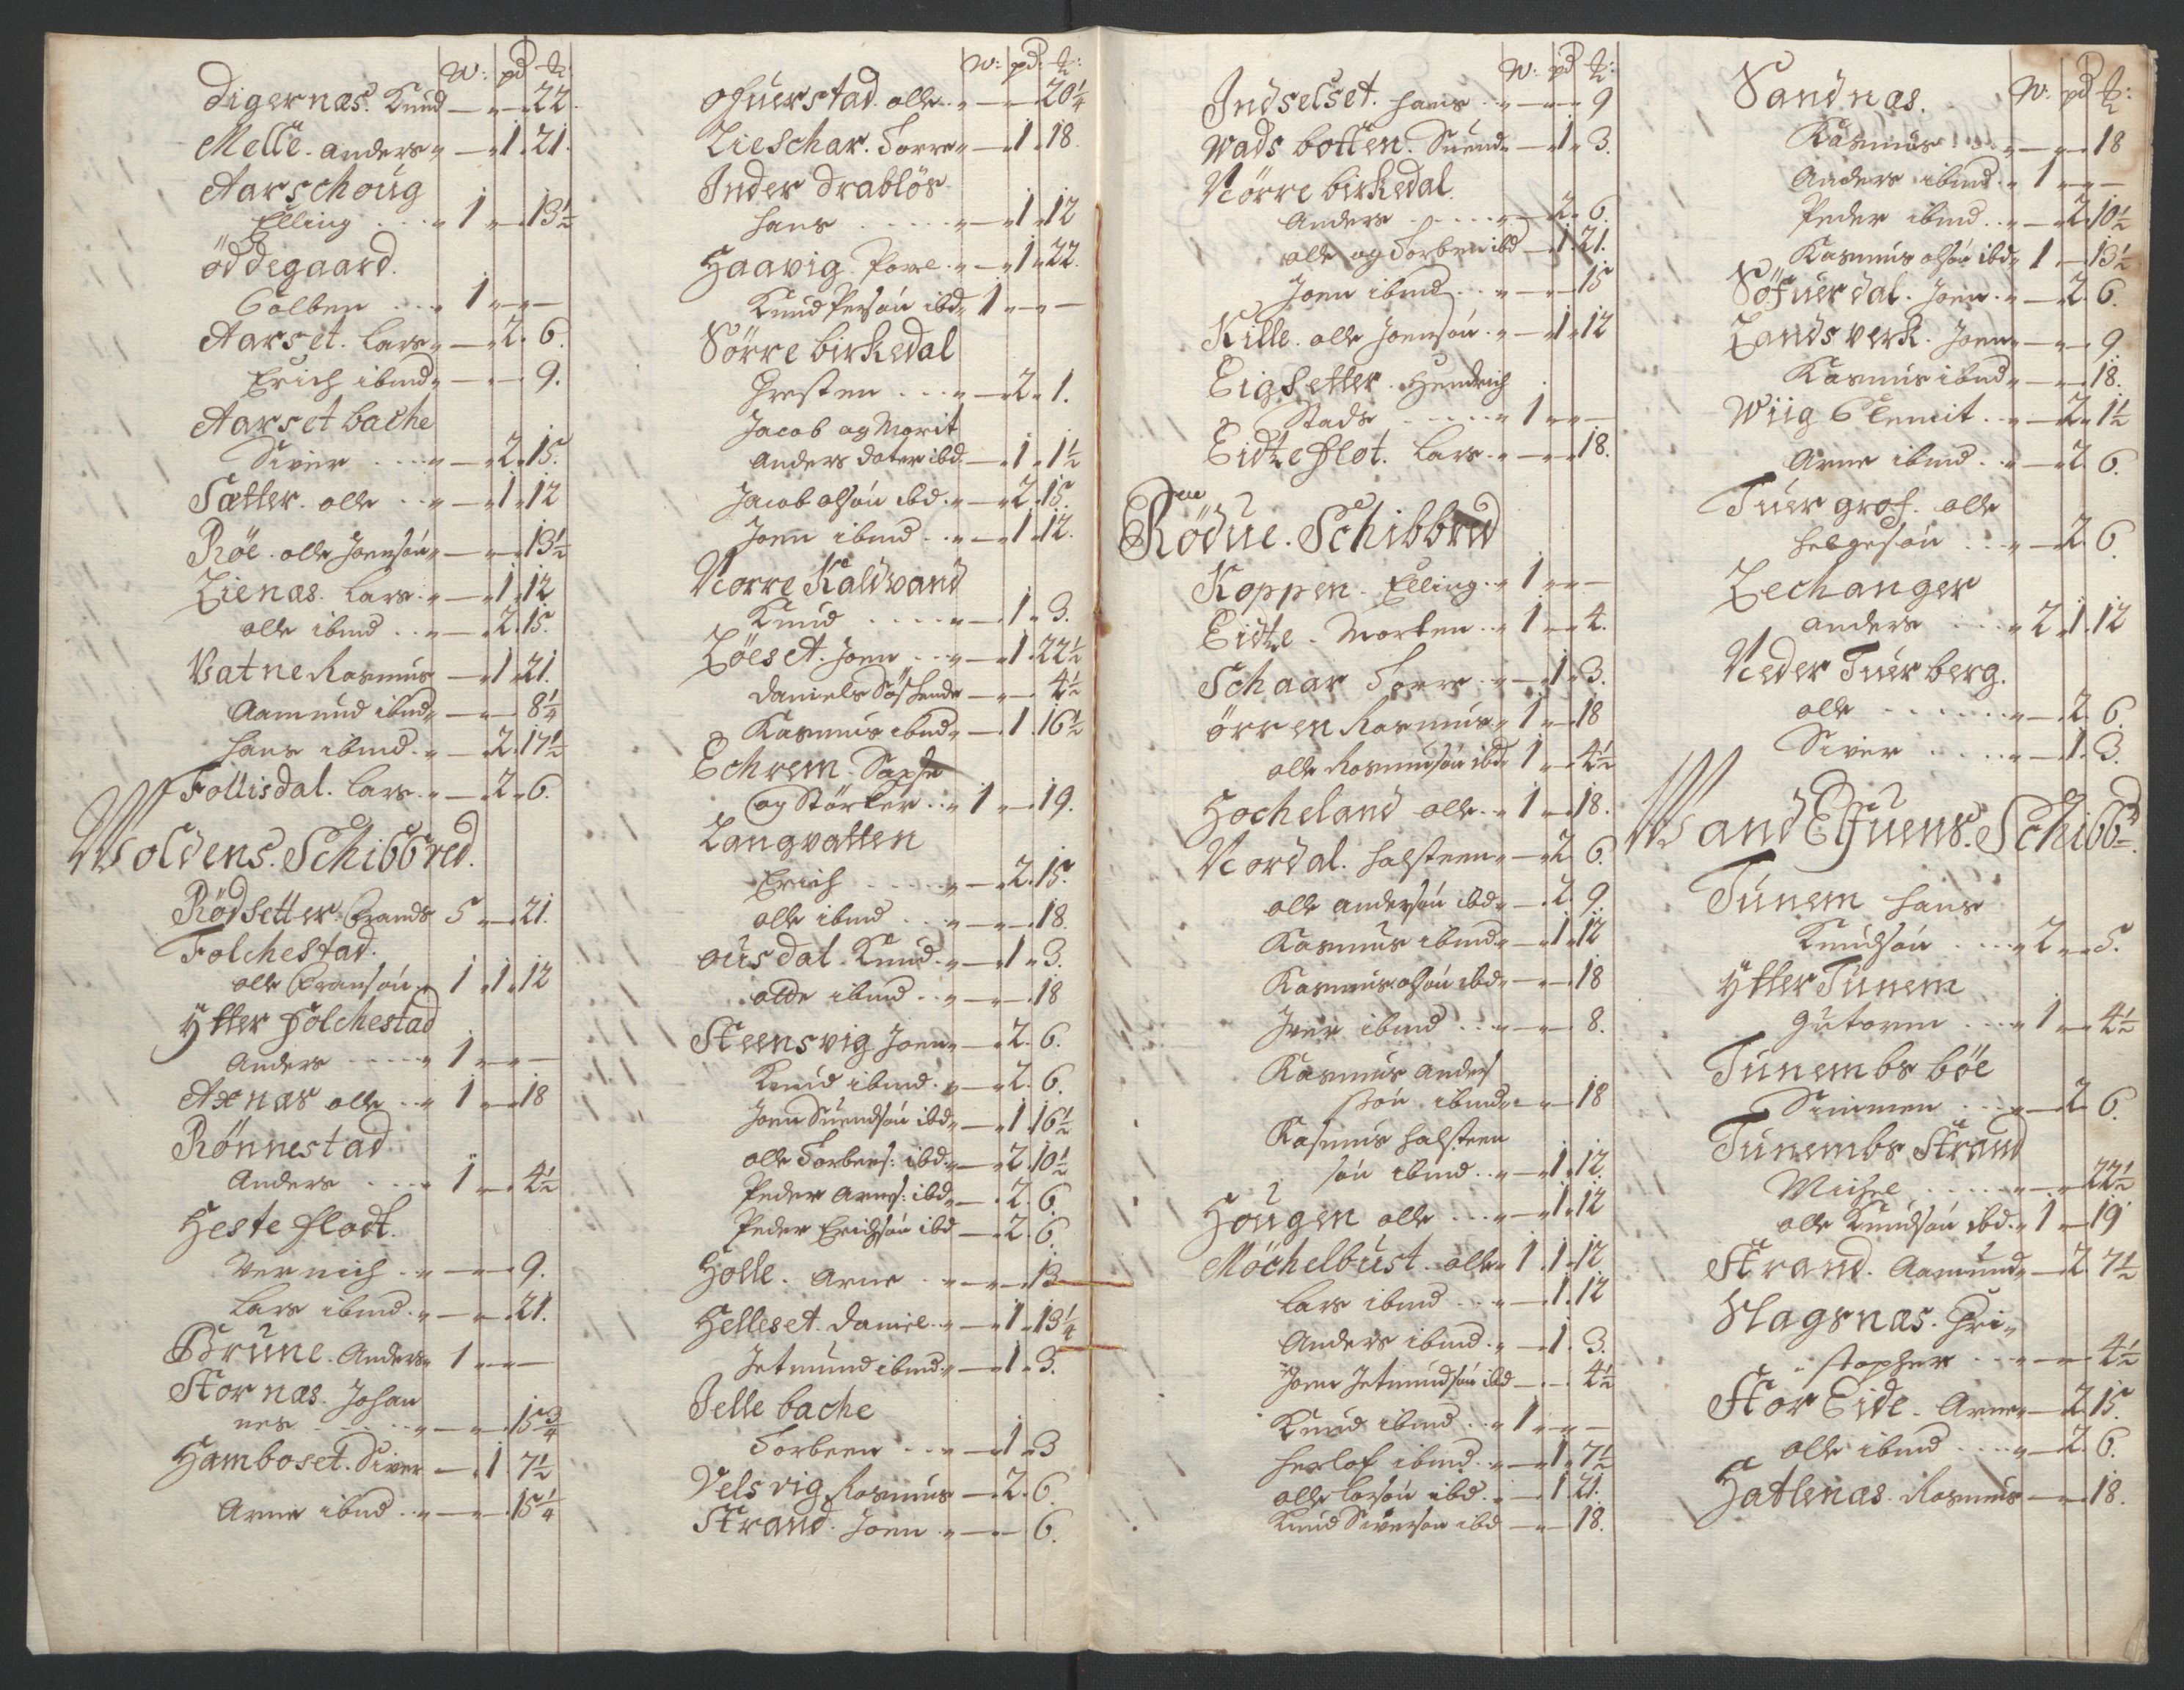 W: pd ℔:
Digernæs. Knud — „ — „ 22.
Melle. anders „ — „ 1 „ 21.
Aarschoug
Elling .... „ 1 „ — „ 13½
öddegaard.
Colben ... „ 1 „ — „ —
Aarset. Lars „ — „ 2. 6.
Erich ibmd „ — „ — „ 9.
Aarset bache
Siver .... „ — „ 2 „ 15.
Sætter. olle .. „ — „ 1 „ 12
Röe. olle Joensön „ — „ — „ 13½
Lienæs. Lars „ — „ 1 „ 12
olle ibmd .. „ — „ 2. 15.
Vatne Rasmus — „ 1 „ 21.
Aamund ibmd „ — „ — „ 8¼
hans ibmd. „ — „ 2. 17½
Follisdal. Lars „ — „ 2 „ 6.
Woldens. Schibbred.
Rödsetter. Frands 5 „ — „ 21.
Folchestad.
olle Fransön. „ 1 „ 1 „ 12
Ytter Folchestad
Anders ..... „ 1 „ — „ —
Axnæs olle .. „ 1 „ — „ 18
Rönnestad
Anders .... 1 „ — „ 4½
Heste flodt.
Vernich . „ — „ — „ 9.
Lars ibmd. „ — „ — „ 21.
Brune. Anders „ 1 „ — „ —
Stornæs. Johan
nes ..... „ — „ — „ 15¾
Hamboset. Siver — „ 1. 7½
Arne ibmd .. „ — „ — „ 15¼
W: pd: ℔:
Ofuerstad. olle. „ — „ — „ 20¼
Lieschar. Torre „ — „ 1 „ 18.
Inder drablös
hans ..... „ — „ 1 „ 12
Haavig. Povel. „ — „ 1 „ 22.
Knud Persön ibd „ 1 „ — „ —
Sörre birkedal
Chresten ... „ — „ 2 „ 1.
Jacob og Marit
Anders dater ibd — „ 1 „ 1½
Jacob olsön ibd. „ — „ 2 „ 15.
Joen ibmd .. „ — „ 1 „ 12.
Norre Kaldvand
Knud ..... „ — „ 1 „ 3.
Löeset. Joen ... „ — „ 1. 22½
Daniels Söskende — „ — „ 4½
Rasmus ibmd „ — „ 1. 16½
Echrem. Saphe
og Störker .. „ 1 „ — „ 19.
Langvatten
Erich ..... „ — „ 2. 15.
olle ibmd ... „ — „ — „ 18.
ousdal. Knud. „ — „ 1 „ 3.
olde ibmd .. „ — „ — „ 18
Steensvig Joen „ — „ 2. 6.
Knud ibmd. „ — „ 2. 6.
Joen Suendsön ibd „ — „ 1. 16½
olle Torbens: ibd „ — „ 2. 10½
Peder Arnes: ibd „ — . 2. 6.
Peder Erichsön ibd — „ 2. 6.
Holle. Arne .. „ — „ — „ 13
Helleset. Daniel. „ — „ 1 „ 13¼
Jetmund ibmd „ — „ 1 „ 3.
Jelle bache
Torbeen ... „ — „ 1 „ 3
Velsvig. Rasmus — „ 2. 6.
Strand. Joen . „ — „ — „ 6.
W: pd ℔:
Indselset. hans .. „ — „ — „ 9
Wads botten. Suend „ — „ 1 „ 3.
Nörre birkedal.
Anders ..... „ — „ 2 „ 6.
olle og Torben ibd — „ 1. 21.
Joen ibmd ... „ — „ — „ 15
Kille. olle Joensön. „ — „ 1 „ 12
Eigsetter. Hendrich
Stads ..... „ 1 „ — „ —
Eidteflot. Lars. „ — „ — „ 18.
Rödue. Schibbred
Koppen. Elling. „ 1 „ — „ —
Eidte. Morten .. „ 1 „ — „ 4.
Schaar Torre .. „ — „ 1 „ 3.
örren Rasmus. „ 1 „ — „ 18
olle Rasmusön ibd „ 1 „ — „ 4½
Hocheland olle. „ 1 „ — „ 18.
Nordal. halsteen „ — „ 2 „ 6.
olle andersön ibd „ — „ 2. 9.
Rasmus ibmd. „ — „ 1 „ 12
Rasmus olsön ibd „ — „ — „ 18
Iver ibmd ... „ — „ — „ 8.
Rasmus anders
sön ibmd „ — „ — „ 18
Rasmus halsteen
sön ibmd .. „ — „ 1 „ 12.
Hougen olle ... „ — „ 1 „ 12
Möchelbust. olle „ 1 „ 1. 12.
Lars ibmd ... „ — „ 1. 12
Anders ibmd. „ — „ 1. 3.
Joen Jetmundsön ibd — „ — „ 4½
Knud ibmd .. „ 1 „ — „ —
herlof ibmd. „ — „ 1 „ 7½
olle larsön ibd. „ — „ 1. 21.
Knud Siversön ibd — „ — „ 18.
Sandnæs. W. pd ℔:
Rasmus .... „ — „ — „ 18
Anders ibmd. „ 1 „ — „ —
Peder ibmd .. „ — „ 2. 10½
Rasmus olsön ibd „ 1 „ — „ 13½
Söfuerdal. Joen. „ — „ 2. 6.
Landsverk. Joen „ — „ — „ 9
Rasmus ibmd „ — „ — „ 18.
Wiig Clemit. .. „ — „ 2 „ 1½
Arne ibmd. .. „ — „ 2. 6.
Tuergrof. olle
helgesön ... „ — „ 2. 6.
Lechanger
anders .... „ 2 „ 1. 12
Neder Tuerberg.
olle ...... „ — „ 2. 6.
Siver ..... „ — „ 1. 3.
Wand Elfuens. Schibb:
Tunem hans
Knudsön ... „ 2 „ — „ 5.
Ytter Tunem
Gutorm .... „ 1 „ — „ 4½
Tunembs böe
Simmen .... „ — „ 2 „ 6.
Tunembs Strand
Michel ..... „ — „ — „ 22½
olle Knudsön ibd. „ 1 „ — „ 19
Strand. Aamund „ — „ 2. 7½
Flagsnæs. Chri„
„ stopher .... „ — „ — „ 4½
Stor Eide. Arne „ — „ 2 15.
olle ibmd .... „ — „ 2. 6.
Hatlenæs. Rasmus — „ — „ 18.